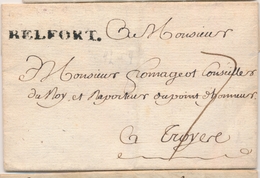 BELFORT. A Monsieur
Monsieur Fromageot Conseiller
du Roy, et Raporteur du point d'honneur
A Troyes